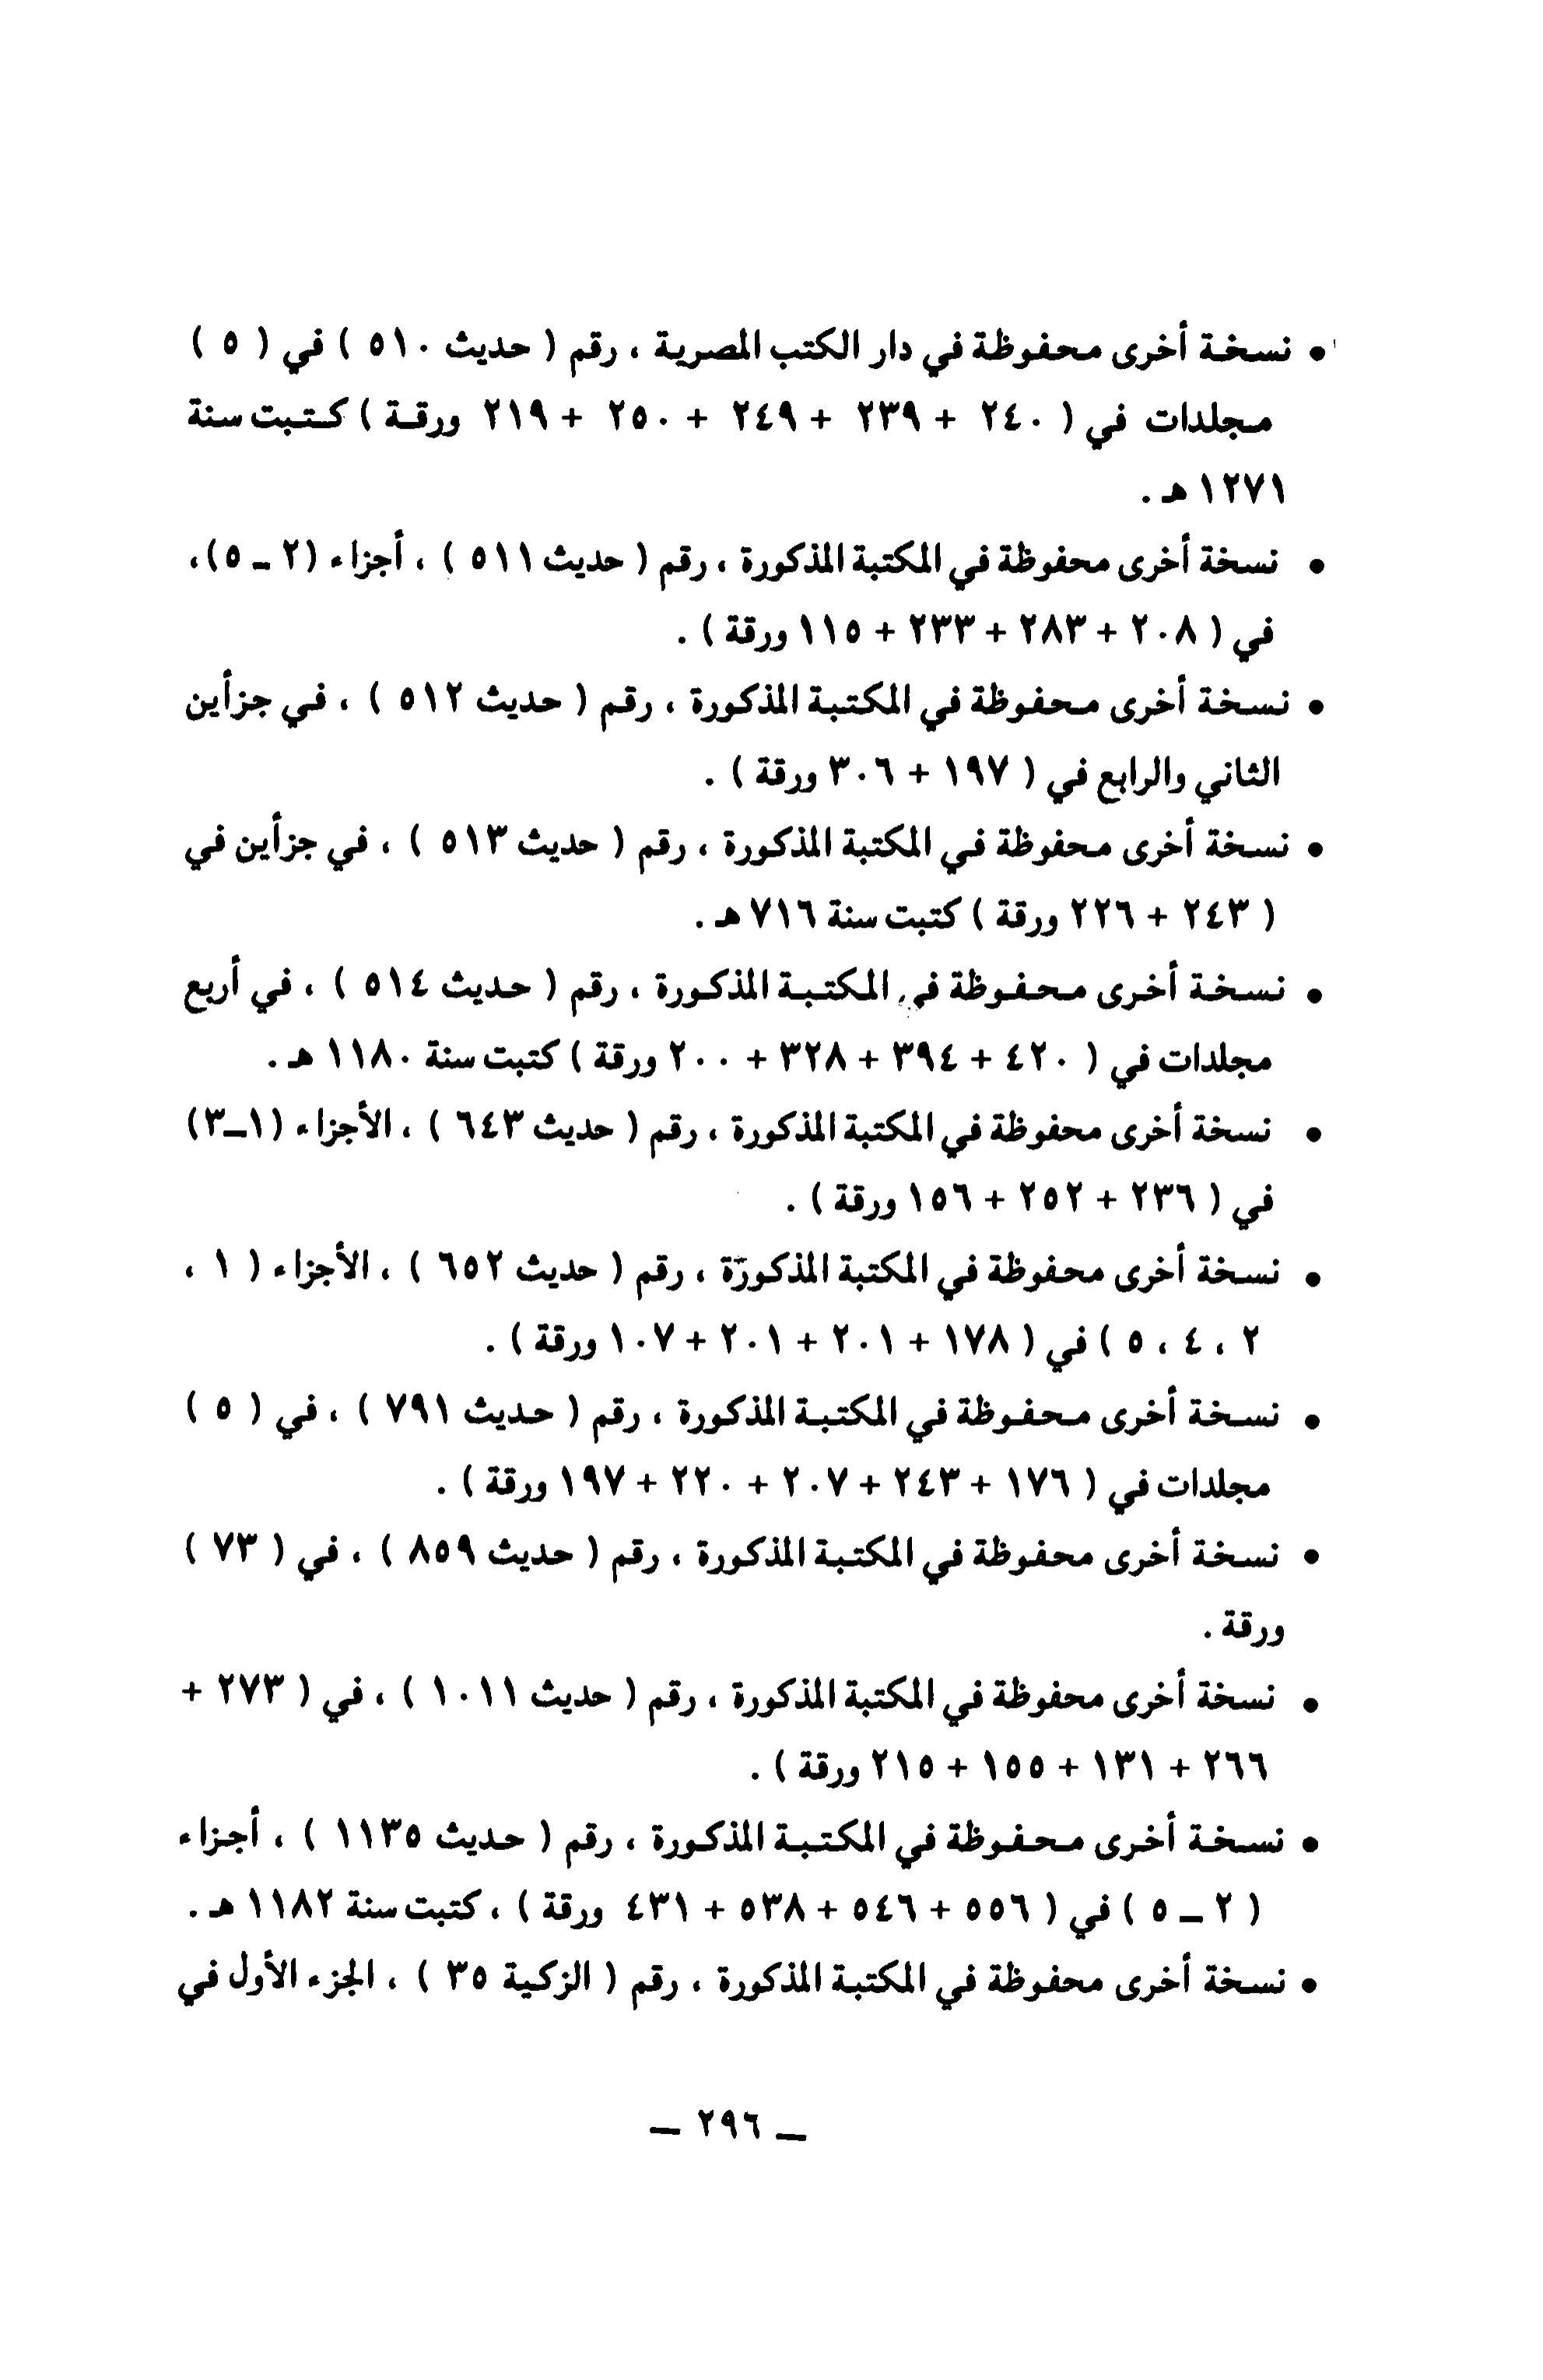 • نسخة أخرى محفوظة في دار الكتب المصرية ، رقم ( حديث ٥١٠ ) في ( ٥ )
مجلدات في ( ٢٤٠ + ٢٣٩ + ٢٤٩ + ٢٥٠ + ٢١٩ ورقة ) كتبت سنة
١٢٧١ هـ .
• نسخة أخرى محفوظة في المكتبة المذكورة ، رقم ( حديث ٥١١ ) ، أجزاء (٢ ـ ٥)،
في ( ٢٠٨ + ٢٨٣ + ٢٣٣ + ١١٥ ورقة ) .
• نسخة أخرى محفوظة في المكتبة المذكورة ، رقم ( حديث ٥١٢ ) ، في جزأين
الثاني والرابع في ( ١٩٧ + ٣٠٦ ورقة ) .
• نسخة أخرى محفوظة في المكتبة المذكورة ، رقم ( حديث ٥١٣ ) ، في جزأين في
( ٢٤٣ + ٢٢٦ ورقة ) كتبت سنة ٧١٦ هـ .
• نسخة أخرى محفوظة في المكتبة المذكورة ، رقم ( حديث ٥١٤ ) ، في أربع
مجلدات في ( ٤٢٠ + ٣٩٤ + ٣٢٨ + ٢٠٠ ورقة ) كتبت سنة ١١٨٠ هـ .
• نسخة أخرى محفوظة في المكتبة المذكورة ، رقم ( حديث ٦٤٣ ) ، الأجزاء (١ـ٣)
في ( ٢٣٦ + ٢٥٢ + ١٥٦ ورقة ) .
• نسخة أخرى محفوظة في المكتبة المذكورة ، رقم ( حديث ٦٥٢ ) ، الأجزاء ( ١ ،
٢ ، ٤ ، ٥ ) في ( ١٧٨ + ٢٠١ + ٢٠١ + ١٠٧ ورقة ) .
• نسخة أخرى محفوظة في المكتبة المذكورة ، رقم ( حديث ٧٩١ ) ، في ( ٥ )
مجلدات في ( ١٧٦ + ٢٤٣ + ٢٠٧ + ٢٢٠ + ١٩٧ ورقة ) .
• نسخة أخرى محفوظة في المكتبة المذكورة ، رقم ( حديث ٨٥٩ ) ، في ( ٧٣ )
ورقة .
• نسخة أخرى محفوظة في المكتبة المذكورة ، رقم ( حديث ١٠١١ ) ، في ( ٢٧٣ +
٢٦٦ + ١٣١ + ١٥٥ + ٢١٥ ورقة ) .
• نسخة أخرى محفوظة في المكتبة المذكورة ، رقم ( حديث ١١٣٥ ) ، أجزاء
( ٢ ـ ٥ ) في ( ٥٥٦ + ٥٤٦ + ٥٣٨ + ٤٣١ ورقة ) ، كتبت سنة ١١٨٢ هـ .
• نسخة أخرى محفوظة في المكتبة المذكورة ، رقم ( الزكية ٣٥ ) ، الجزء الأول في
ـ ٢٩٦ ـ